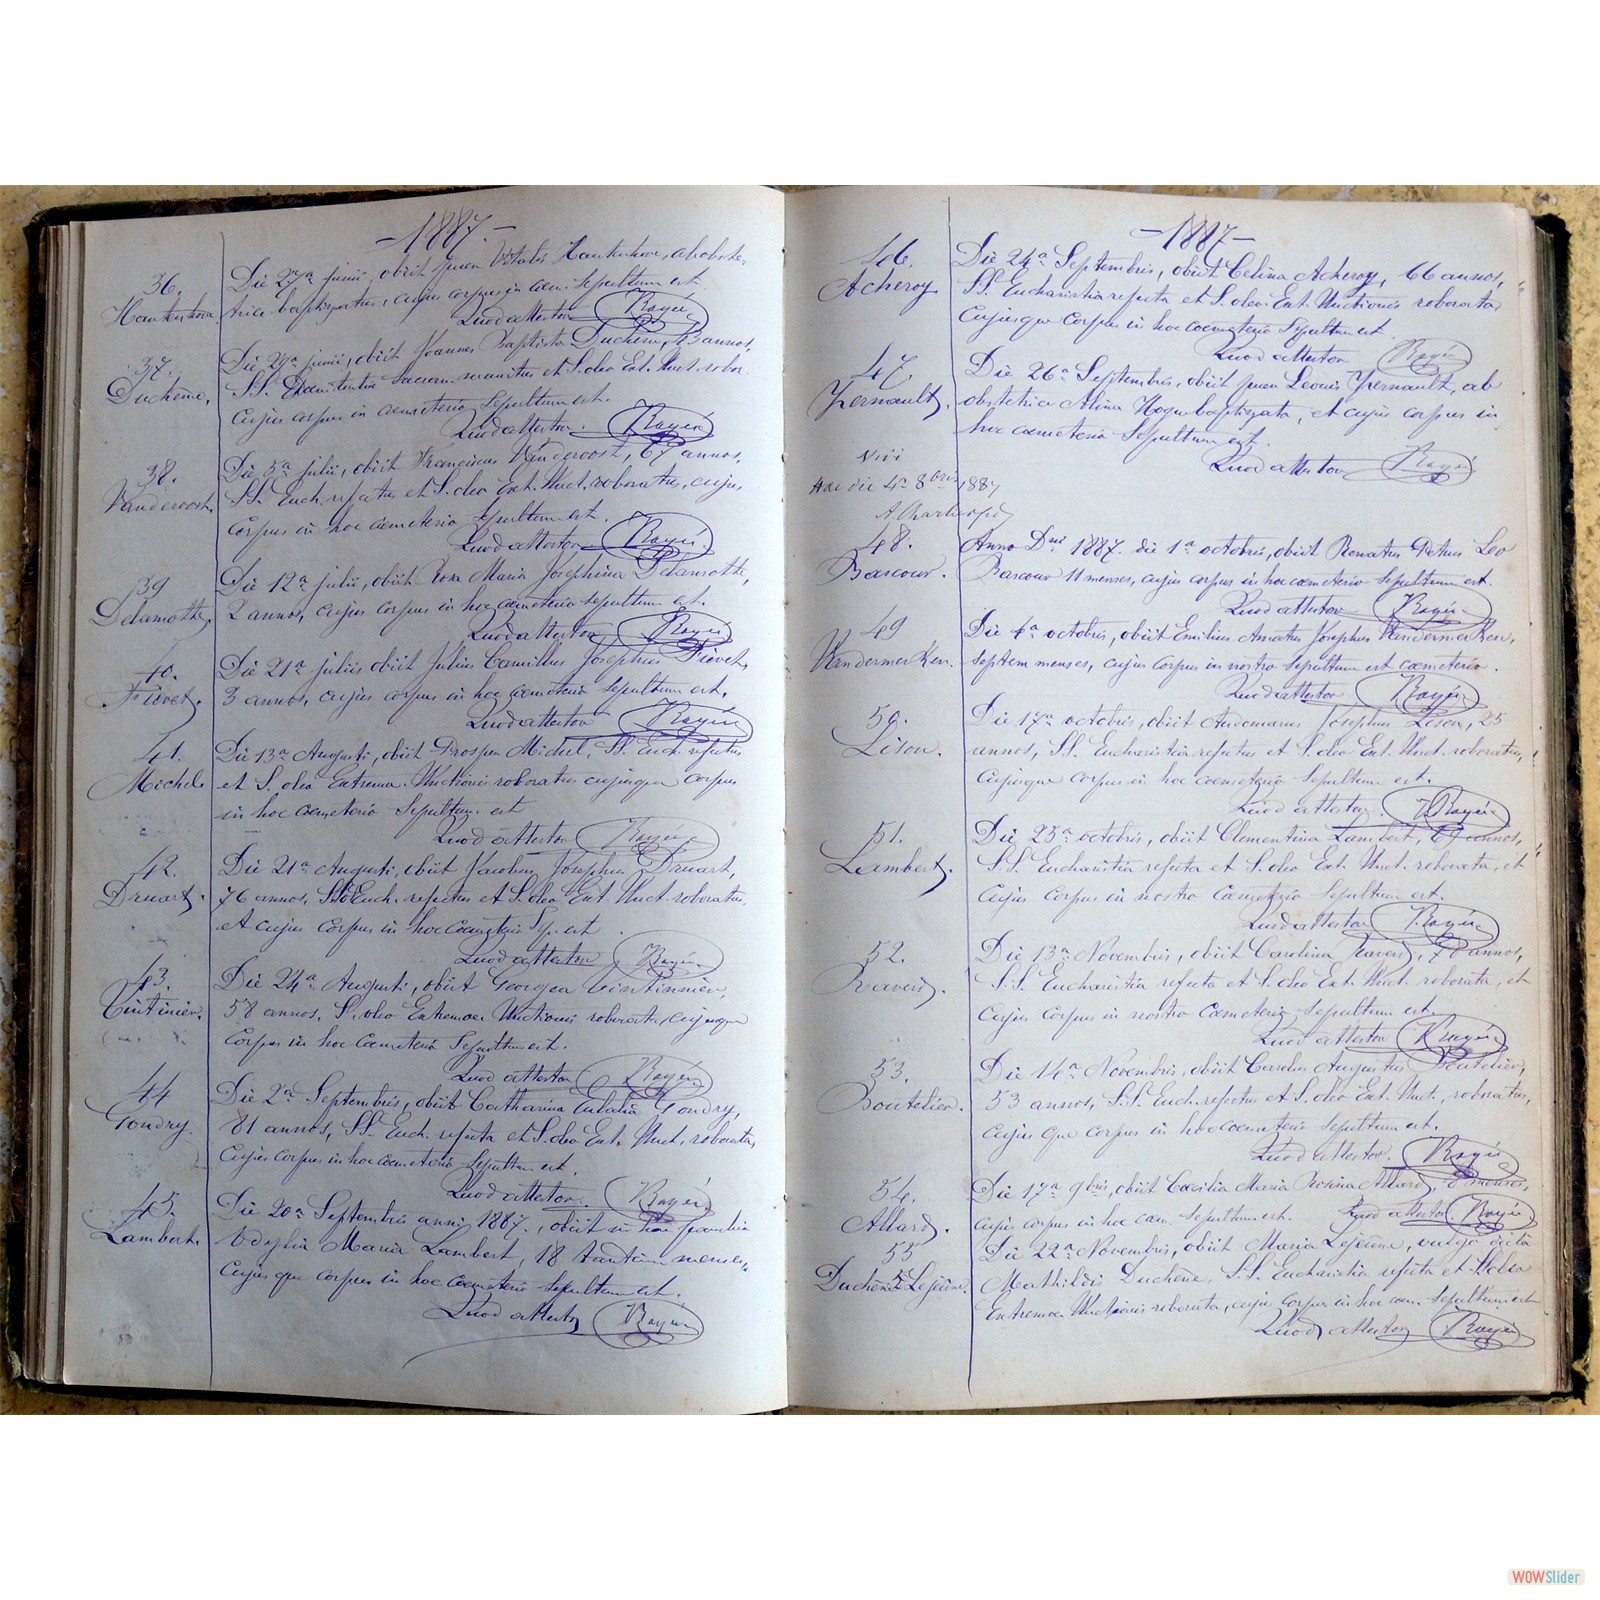 -1887.-
36.
Die 27a junii, obiit puer Vitalis Hautenhove, ab obste-
trice baptizatus, cujus corpus in coem. sepultum est.
Quod attestor
37.
Duchêne,
Die 29a junii, obiit Joannes Baptista Duchêne, annos,
SS. sacram. munitus et S. oleo Ext. Unct. robor.
cujus corpus in coemeterio sepultum est.
Quod attestor.
38.
Vanderoost.
Die 5a julii, obiit Franciscus Vanderoost, 67 annos,
SS. Euch. refectus et S. oleo Ext. Unct. roboratus, cujus
corpus in hoc coemeterio sepultum est.
Quod attestor
39
Delamotte,
Die 12a julii, obiit Rosa Maria Josephina Delamotte,
2 annos, cujus corpus in hoc coemeterio sepultum est.
Quod attestor
40.
Die 21a julii obiit Julius Camillus Josephus
3 annos, cujus corpus in hoc coemeterio sepultum est.
Quod attestor
41.
Michel
Die 13a Augusti, obiit Prosper Michel, SS. Euch. refectus
et S. oleo Extrema Unctionis roboratus cujusque corpus
in hoc coemeterio sepultum est
Quod attestor
42.
Druart.
Die 21a Augusti, obiit Jacobus Josephus Druart,
76 annos, SS. Euch. refectus et S. oleo Ext. Unct. roboratus,
et cujus corpus in hoc coemeterio Sep. est.
Quod attestor
43.
Die 24a Augusti, obiit Georgea
58 annos, S. oleo Extremae Unctionis roborata, cujusque
corpus in hoc coemeterio Sepultum est.
Quod attestor
44
Gondry.
Die 2a Septembris, obiit Catharina Eulalia Gondry,
81 annos, SS. Euch. refecta et S. oleo Ext. Unct. roborata,
cujus corpus in hoc coemeterio sepultum est.
Quod attestor.
45.
Lambert.
Die 20a Septembris anni 1887, obiit
Maria Lambert, 18 tantum menses,
cujus que corpus in hoc coemeterio sepultum est.
Quod attestor
-1887-
46.
Acheroy
Die 24a Septembris, obiit Celina Acheroy, 66 annos,
SS. Eucharistia refecta et S. oleo Ext. Unctionis roborata
cujusque corpus in hoc coemeterio sepultum est.
Quod attestor
47.
Yernault.
Die 26a Septembris, obiit puer Leonis Yernault, ab
obstetrice Alina baptizata, et cujus corpus in
hoc coemeterio sepultum est.
Quod attestor
Vidi
hac die 4a 8bris 1887
48.
Bascour.
Anno Dni 1887. die 1a octobris, obiit Renatus Petrus Leo
Bascour 11 menses, cujus corpus in hoc coemeterio sepultum est.
Quod attestor
49
Vandermerken.
Die octobris, obiit Emilius Amatus Josephus Vandermerken,
septem menses, cujus corpus in nostro sepultum est coemeterio.
Quod attestor
50.
Lison.
Die 17a octobris, obiit Audomarus Josephus Lison, 25
annos, SS. Eucharistia refectus et S. oleo Ext. Unct. roboratus,
cujusque corpus in hoc coemeterio sepultum est.
Quod attestor
51.
Lambert.
Die 25a octobris, obiit Clementina Lambert, annos,
S.S. Eucharistia refecta et S. oleo Ext. Unct. roborata, et
cujus corpus in nostro coemeterio sepultum est.
Quod attestor
52.
Die 13a Novembris, obiit Carolina annos,
S.S. Eucharistia refecta et S. oleo Ext. Unct. roborata, et
cujus corpus in nostro coemeterio sepultum est.
Quod attestor
53.
Boutelier.
Die 14a Novembris, obiit Carolus Augustus Boutelier,
53 annos, S.S. Euch. refectus et S. oleo Ext. Unct., roboratus,
cujus que corpus in hoc coemeterio sepultum est.
Quod attestor.
54.
Allard.
Die 17a 9bris, obiit Cæcilia Maria Rosina Allard, menses,
cujus corpus in hoc coem. sepultum est. Quod attestor
55
Duchêne Lejeune.
Die 22a Novembris, obiit Maria Lejeune, vulgo dicta
Mathildis Duchêne, S.S. Eucharistia refecta et S. oleo
Extremae Unctionis roborata, cujus corpus in hoc coem. sepultum est
Quod attestor
WOWSlider